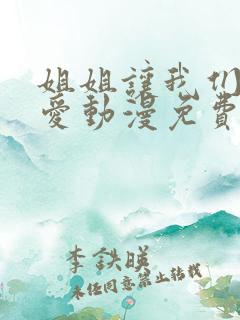 姐姐讓我们
愛動漫免費
李鉄暎
未任同意禁止转载